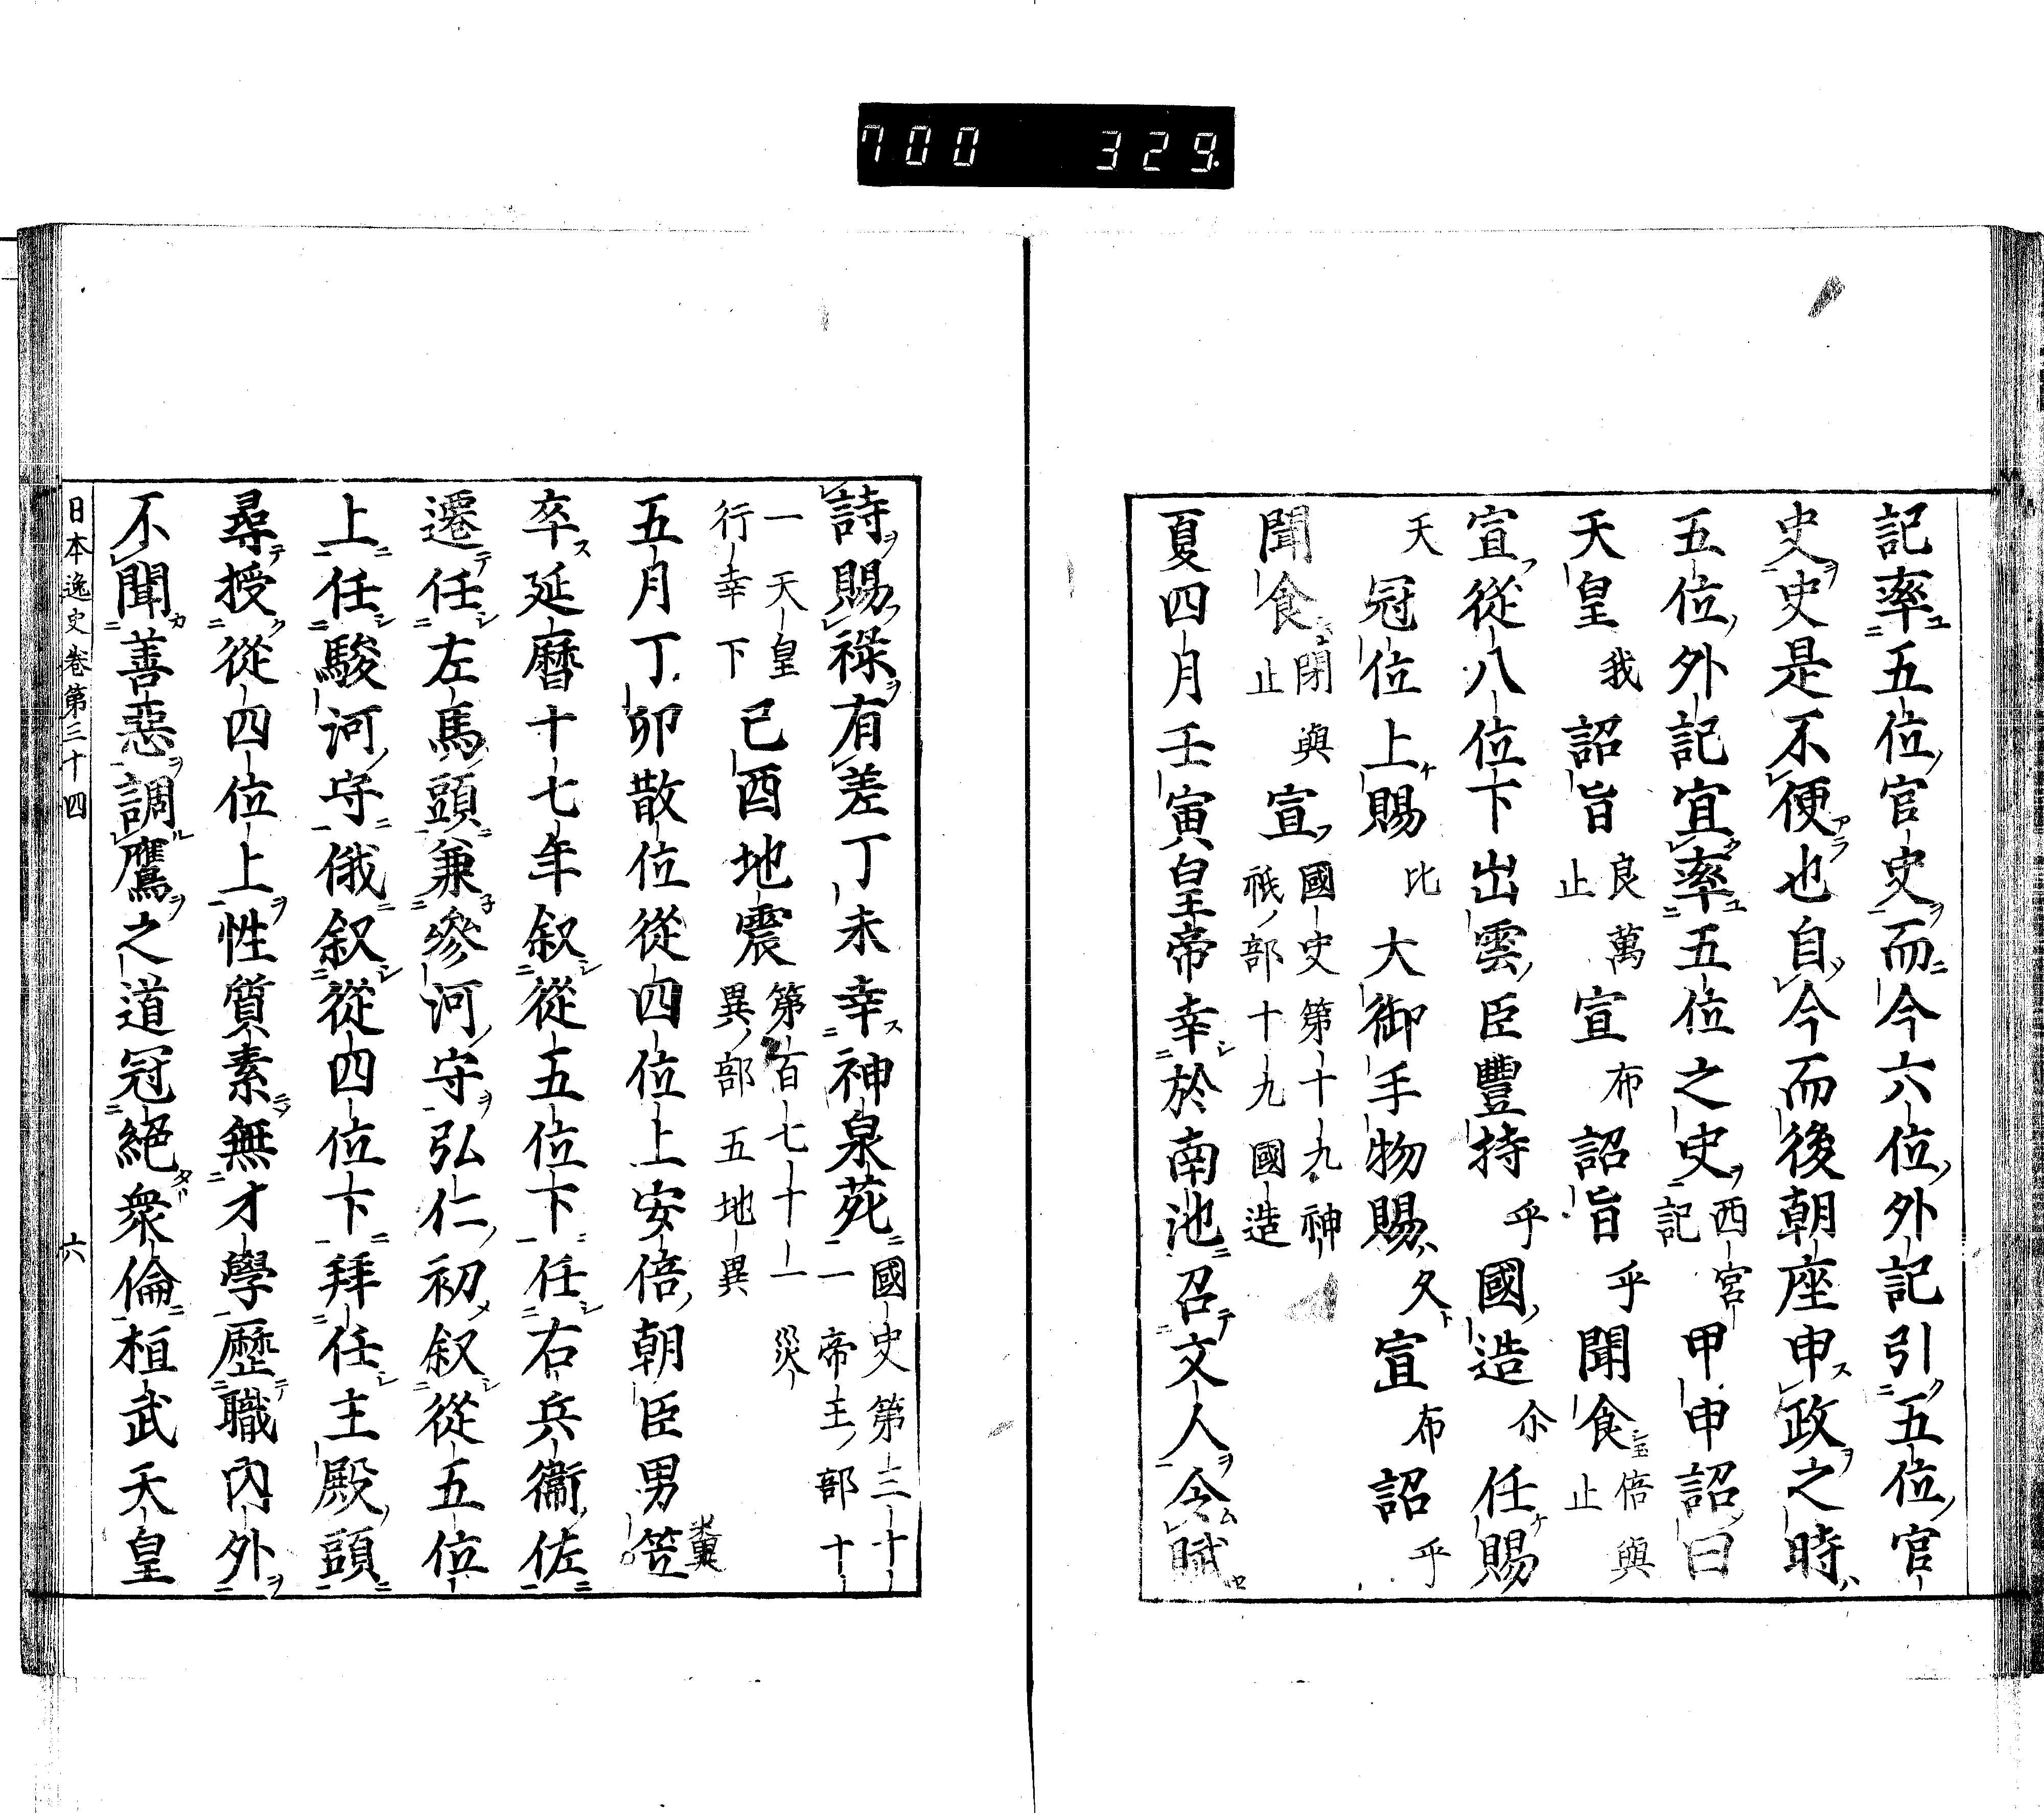 700 329
記率五位官史而今六位外記引五位官
史史是不便也自今而後朝座申政之時
五位外記宜率五位之史西宮記甲申詔曰
天皇我詔旨良萬止宣布詔旨乎聞食倍與止
宣從八位下出雲臣豐持乎國造尒任賜
天冠位上賜比大御手物賜久宣布詔乎
聞食閉與止宣國史第十九神祇部十九國造
夏四月壬寅皇帝幸於南池召文人令賦
詩賜祿有差丁未幸神泉苑國史第三十一帝王部十
一天皇行幸下己酉地震第百七十一災異部五地異
五月丁卯散位從四位上安倍朝臣男笠
卒延曆十七年叙從五位下任右兵衞佐
遷任左馬頭兼參河守弘仁初叙從五位
上任駿河守俄叙從四位下拜任主殿頭
尋授從四位上性質素無才學歷職內外
不聞善惡調鷹之道冠絕衆倫桓武天皇
日本逸史卷第三十四 六